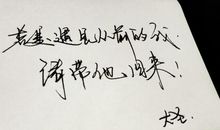 若是遇见从前的我
请带他回来！
大圣